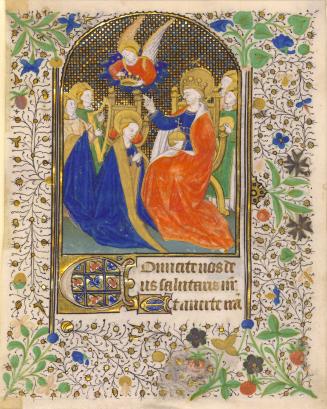 Conuerte nos de
us salutaris nr̄.
Et auerte iram